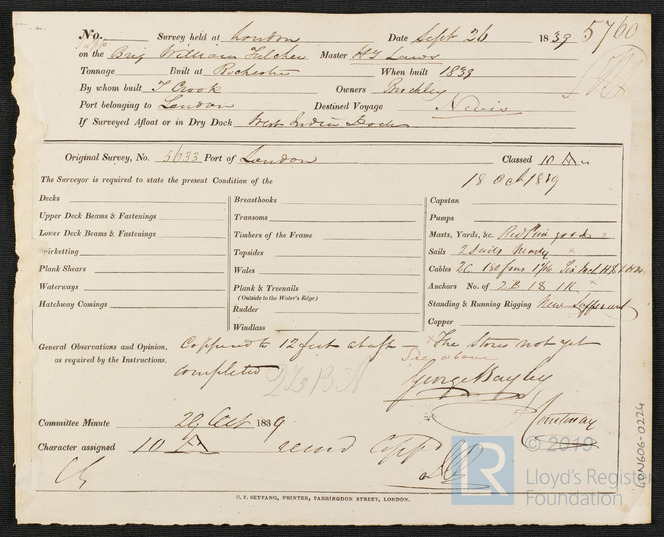 No. Survey held at London Date Sept 26 1839 5760
on the Brig William Fulcher Master H J Laws
Tonnage Built at Rochester When built 1839
By whom built T Crook Owners Buckley
Port belonging to London Destined Voyage Nevis
If Surveyed Afloat or in Dry Dock West India Dock
Original Survey, No. 5633 Port of London Classed 10 A
18 Oct 1839
The Surveyor is required to state the present Condition of the
Decks
Upper Deck Beams & Fastenings
Lower Deck Beams & Fastenings
Spirketting
Plank Shears
Waterways
Hatchway Comings
Breasthooks
Transoms
Timbers of the Frame
Topsides
Wales
Plank & Treenails
(Outside to the Water's Edge)
Rudder
Windlass
Capstan
Pumps
Masts, Yards, &c. Red Pine good
Sails 2 Suits
Cables 2C 180 fms
Anchors No. of 2 B 1 S 1 K
Standing & Running Rigging New Sufficient
Copper
General Observations and Opinion,
as required by the Instructions.
Coppered to 12 feet abaft — The Stores not yet
completed See above
George Bayley
Courtenay
Committee Minute 29 Oct 1839
Character assigned 10 A Copp
C. F. SEYFANG, PRINTER, FARRINGDON STREET, LONDON.
LON606-0224
© 2019
LR
Lloyd's Register
Foundation